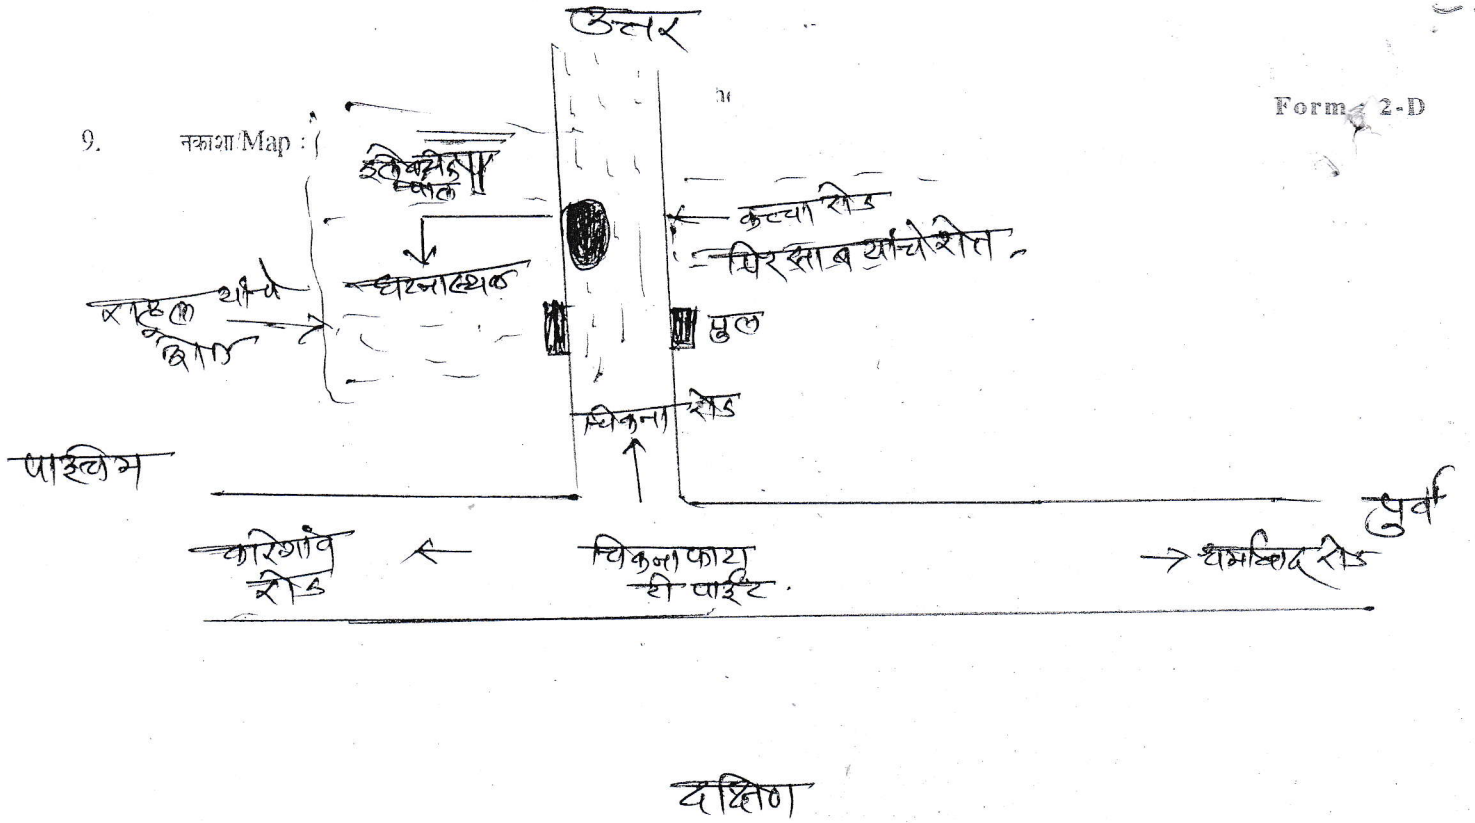 उत्तर
Form 2-D
9. नकाशा/Map :
पोल
कच्चा रोड
पिरसाब यांचे शेत
घटनास्थळ
यांचे
शेत
पुल
चिकना रोड
पाश्चिम
पुर्व
कारेगांव
रोड
चिकना फाटा
टी पाईंट.
धर्माबाद रोड
दक्षिण